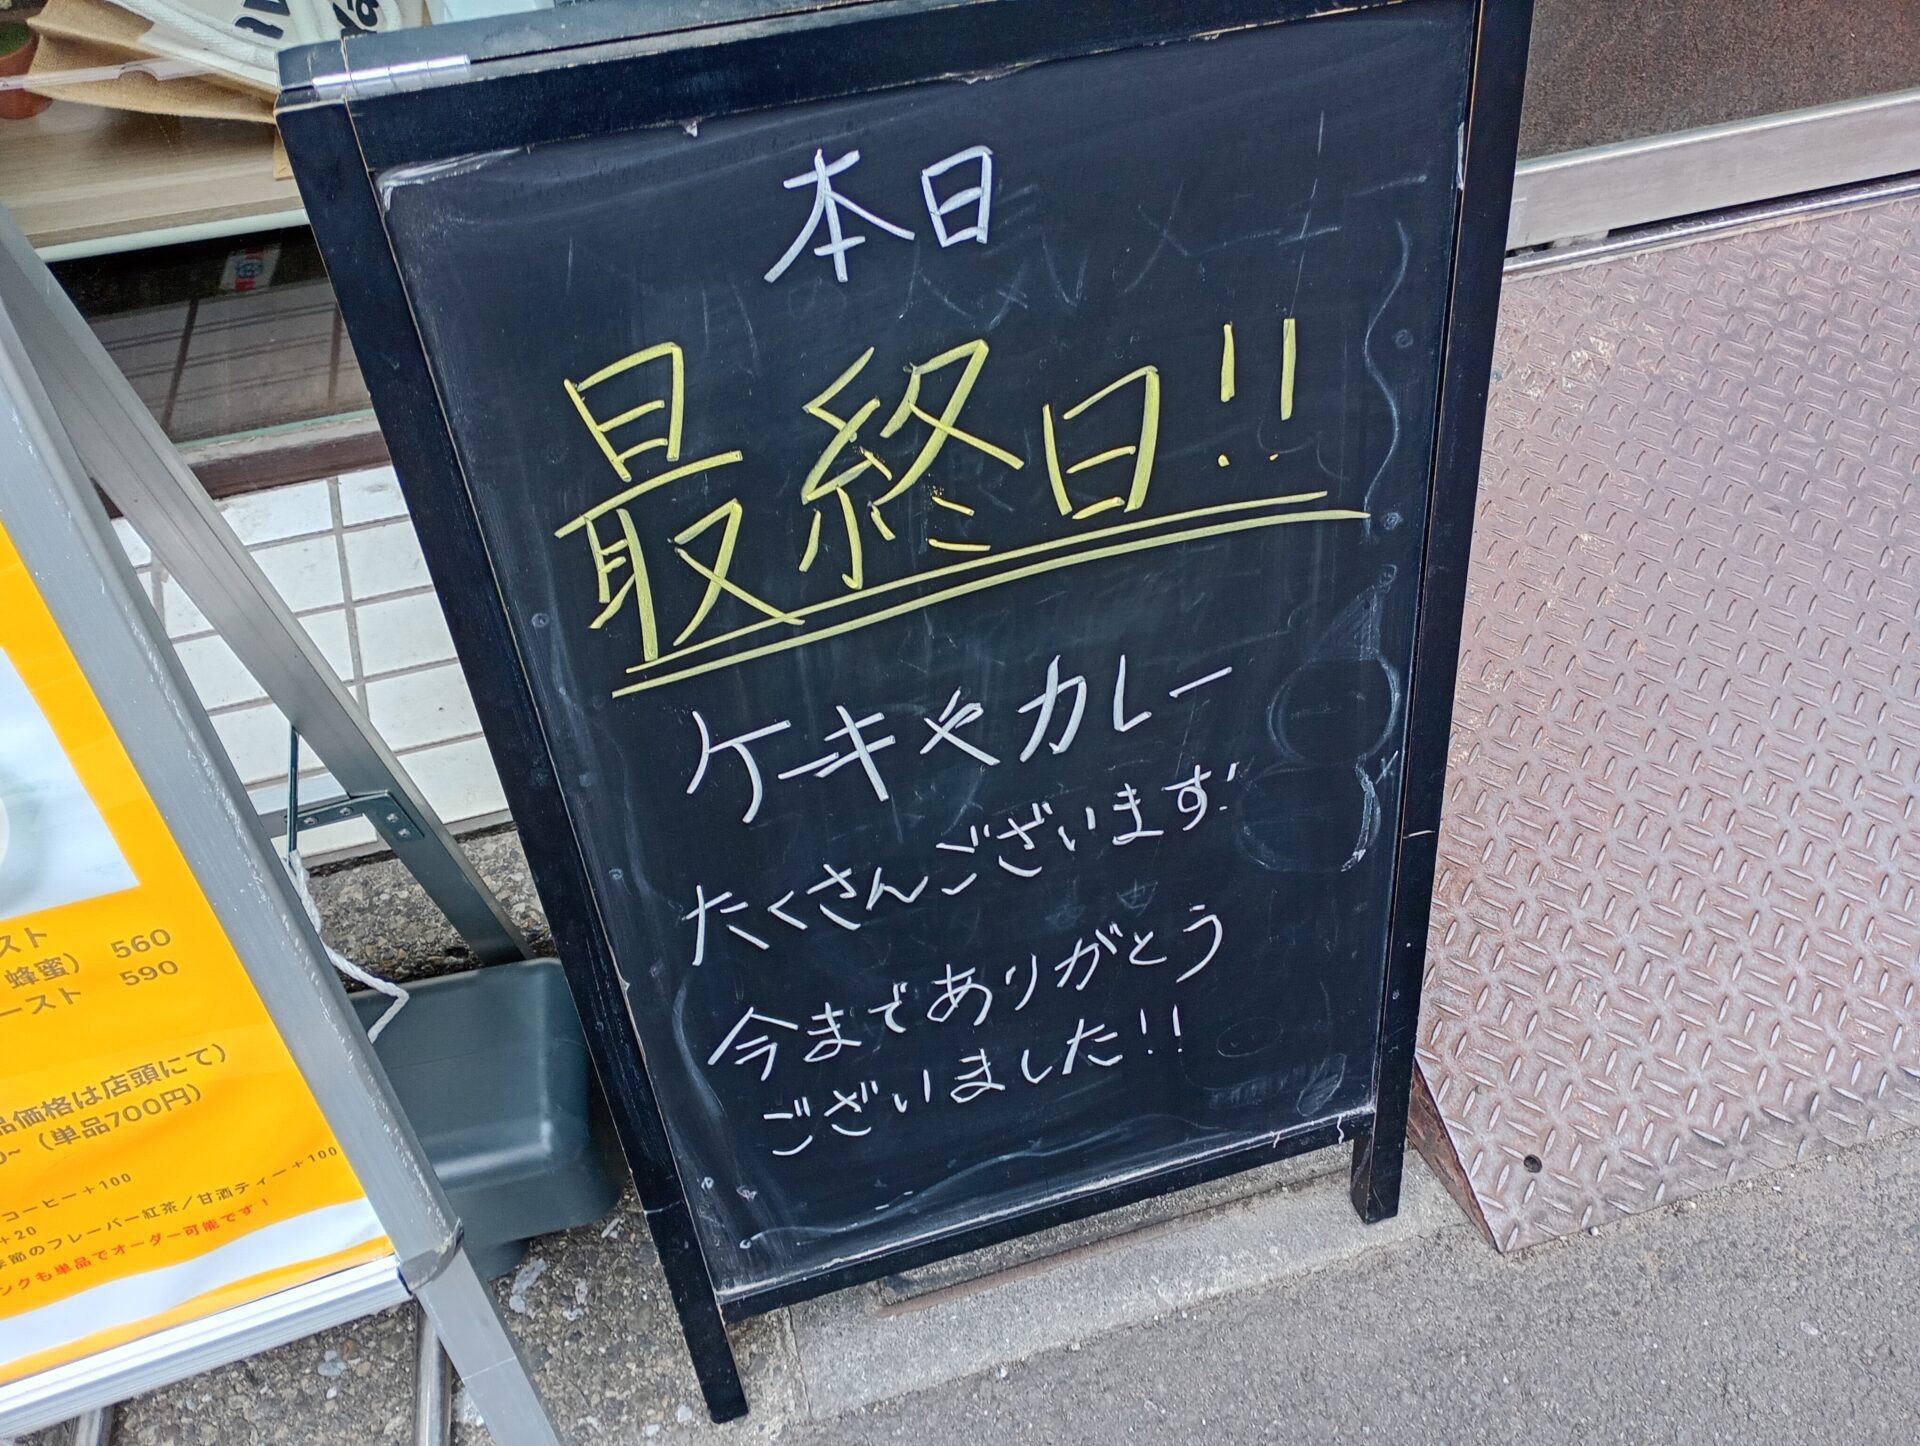 本日
最終日!!
ケーキやカレー
たくさんございます!
今までありがとう
ございました!!
スト 560
蜂蜜)
ースト 590
品価格は店頭にて)
0~（単品700円）
コーヒー＋100
+20
季節のフレーバー紅茶／甘酒ティー＋100
ンクも単品でオーダー可能です！